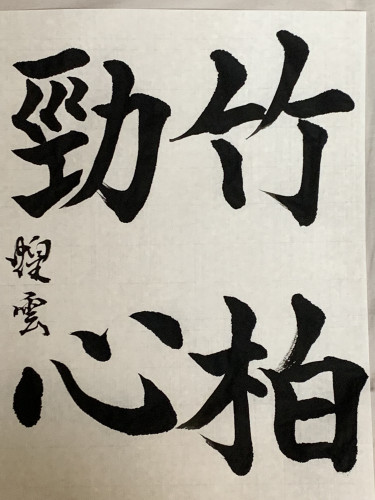 竹柏
勁心
雲